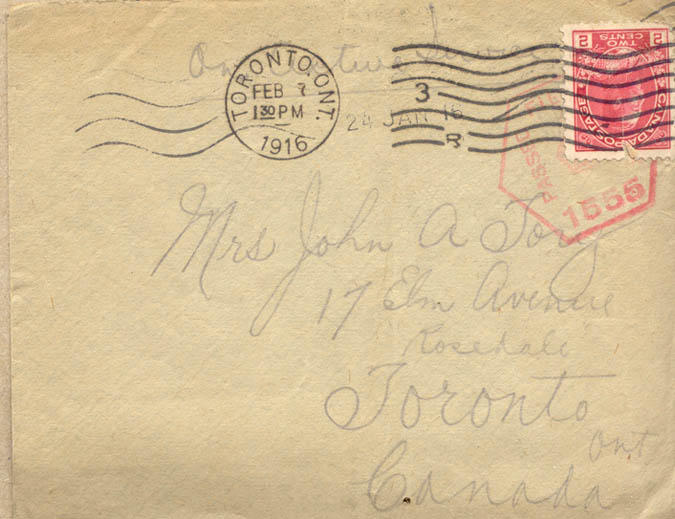 On Active Service
TORONTO, ONT.
FEB 7
1 30 PM
1916
3
24 JAN 16
R
2 TWO CENTS 2
CANADA POSTAGE
PASSED
1555
Mrs John A Tory
17 Elm Avenue
Rosedale
Toronto
Ont
Canada